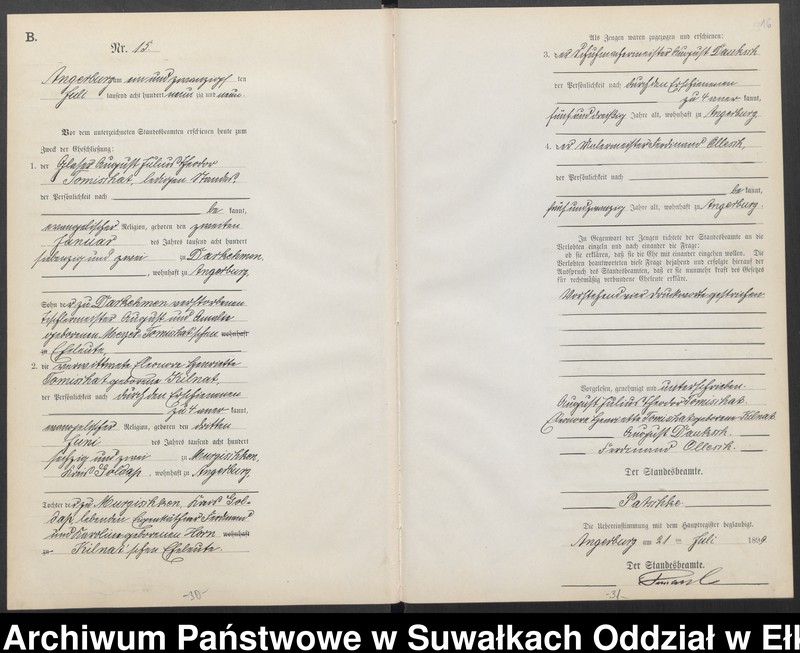 B.
Nr. 15
Angerburg am ein und zwanzigsten
Juli tausend acht hundert neun zig und neun
Vor dem unterzeichneten Standesbeamten erschienen heute zum
Zweck der Eheschließung:
1. der Glaser August Julius Theodor
Tomischat, ledigen Standes,
der Persönlichkeit nach
be kannt,
evangelischer Religion, geboren den zweiten
Januar des Jahres tausend acht hundert
siebenzig und zwei zu Darkehmen,
, wohnhaft zu Angerburg
Sohn der zu Darkehmen verstorbenen
Tischlermeister August und Amalie
geborenen Meyer Tomischat'schen wohnhaft
zu Eheleute,
2. die verwittwete Eleonore Henriette
Tomischat geborene Kilnat,
der Persönlichkeit nach durch den Erschienenen
zu 4 aner kannt,
evangelischer Religion, geboren den dritten
Juni des Jahres tausend acht hundert
sechzig und zwei zu Murgischken,
Kreis Goldap, wohnhaft zu Angerburg
Tochter der zu Murgischken, Kreis Gol-
dap lebenden Eigenkäthner Ferdinand
und Karoline geborenen Horn wohnhaft
zu Kilnat'schen Eheleute
-30-
16
Als Zeugen waren zugezogen und erschienen:
3. der Schuhmachermeister August Dauksch
der Persönlichkeit nach durch den Erschienenen
zu 4 aner kannt,
fünf und dreißig Jahre alt, wohnhaft zu Angerburg
4. der Malermeister Ferdinand Ollesch,
der Persönlichkeit nach
be kannt,
fünf und zwanzig Jahre alt, wohnhaft zu Angerburg.
In Gegenwart der Zeugen richtete der Standesbeamte an die
Verlobten einzeln und nach einander die Frage:
ob sie erklären, daß sie die Ehe mit einander eingehen wollen. Die
Verlobten beantworteten diese Frage bejahend und erfolgte hierauf der
Ausspruch des Standesbeamten, daß er sie nunmehr kraft des Gesetzes
für rechtmäßig verbundene Eheleute erkläre.
Vorstehend vier Druckworte gestrichen
Vorgelesen, genehmigt und unterschrieben
August Julius Theodor Tomischat.
Eleonore Henriette Tomischat geborene Kilnat
August Dauksch.
Ferdinand Ollesch.
Der Standesbeamte.
Patschke
Die Uebereinstimmung mit dem Hauptregister beglaubigt.
Angerburg am 21 ten Juli 1899
Der Standesbeamte.
-31-
Archiwum Państwowe w Suwałkach Oddział w Ełk